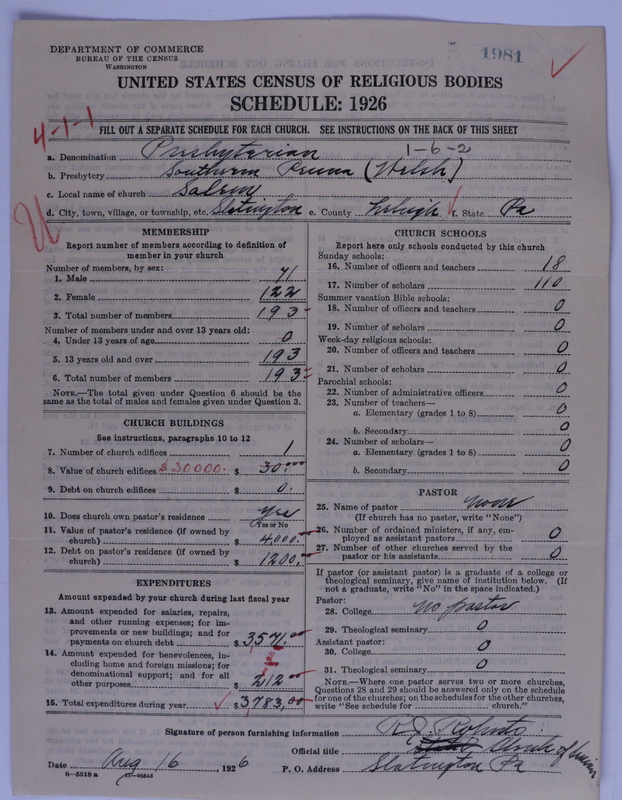 DEPARTMENT OF COMMERCE
BUREAU OF THE CENSUS
WASHINGTON
1981
UNITED STATES CENSUS OF RELIGIOUS BODIES
SCHEDULE: 1926
4-1-1
FILL OUT A SEPARATE SCHEDULE FOR EACH CHURCH. SEE INSTRUCTIONS ON THE BACK OF THIS SHEET
1-6-2
a. Denomination Presbyterian
b. Presbytery Southern Penna (Welsh)
c. Local name of church Salem
d. City, town, village, or township, etc. Slatington e. County Lehigh f. State Pa
MEMBERSHIP
Report number of members according to definition of member in your church
Number of members, by sex:
1. Male 71
2. Female 122
3. Total number of members 193
Number of members under and over 13 years old:
4. Under 13 years of age 0
5. 13 years old and over 193
6. Total number of members 193
NOTE.—The total given under Question 6 should be the same as the total of males and females given under Question 3.
CHURCH BUILDINGS
See instructions, paragraphs 10 to 12
7. Number of church edifices 1
8. Value of church edifices $30000. $ 30.000
9. Debt on church edifices $ 0.
10. Does church own pastor's residence Yes
(Yes or No)
11. Value of pastor's residence (if owned by
church) $ 4000.
12. Debt on pastor's residence (if owned by
church) $ 1200.
EXPENDITURES
Amount expended by your church during last fiscal year
13. Amount expended for salaries, repairs,
and other running expenses; for im-
provements or new buildings; and for
payments on church debt $ 3,571.00
14. Amount expended for benevolences, in-
cluding home and foreign missions; for
denominational support; and for all
other purposes $ 212.00
15. Total expenditures during year $ 3,783.00
CHURCH SCHOOLS
Report here only schools conducted by this church
Sunday schools:
16. Number of officers and teachers 18
17. Number of scholars 110
Summer vacation Bible schools:
18. Number of officers and teachers 0
19. Number of scholars 0
Week-day religious schools:
20. Number of officers and teachers 0
21. Number of scholars 0
Parochial schools:
22. Number of administrative officers 0
23. Number of teachers—
a. Elementary (grades 1 to 8) 0
b. Secondary 0
24. Number of scholars—
a. Elementary (grades 1 to 8) 0
b. Secondary 0
PASTOR
25. Name of pastor None
(If church has no pastor, write "None")
26. Number of ordained ministers, if any, em-
ployed as assistant pastors 0
27. Number of other churches served by the
pastor or his assistants 0
If pastor (or assistant pastor) is a graduate of a college or
theological seminary, give name of institution below. (If
not a graduate, write "No" in the space indicated.)
Pastor:
28. College No pastor
29. Theological seminary 0
Assistant pastor:
30. College 0
31. Theological seminary 0
NOTE.—Where one pastor serves two or more churches,
Questions 28 and 29 should be answered only on the schedule
for one of the churches; on the schedules for the other churches,
write "See schedule for church."
Signature of person furnishing information R. J. Roberts
Official title Clerk of
Date Aug 16, 1926 P. O. Address Slatington Pa
8-5318 a